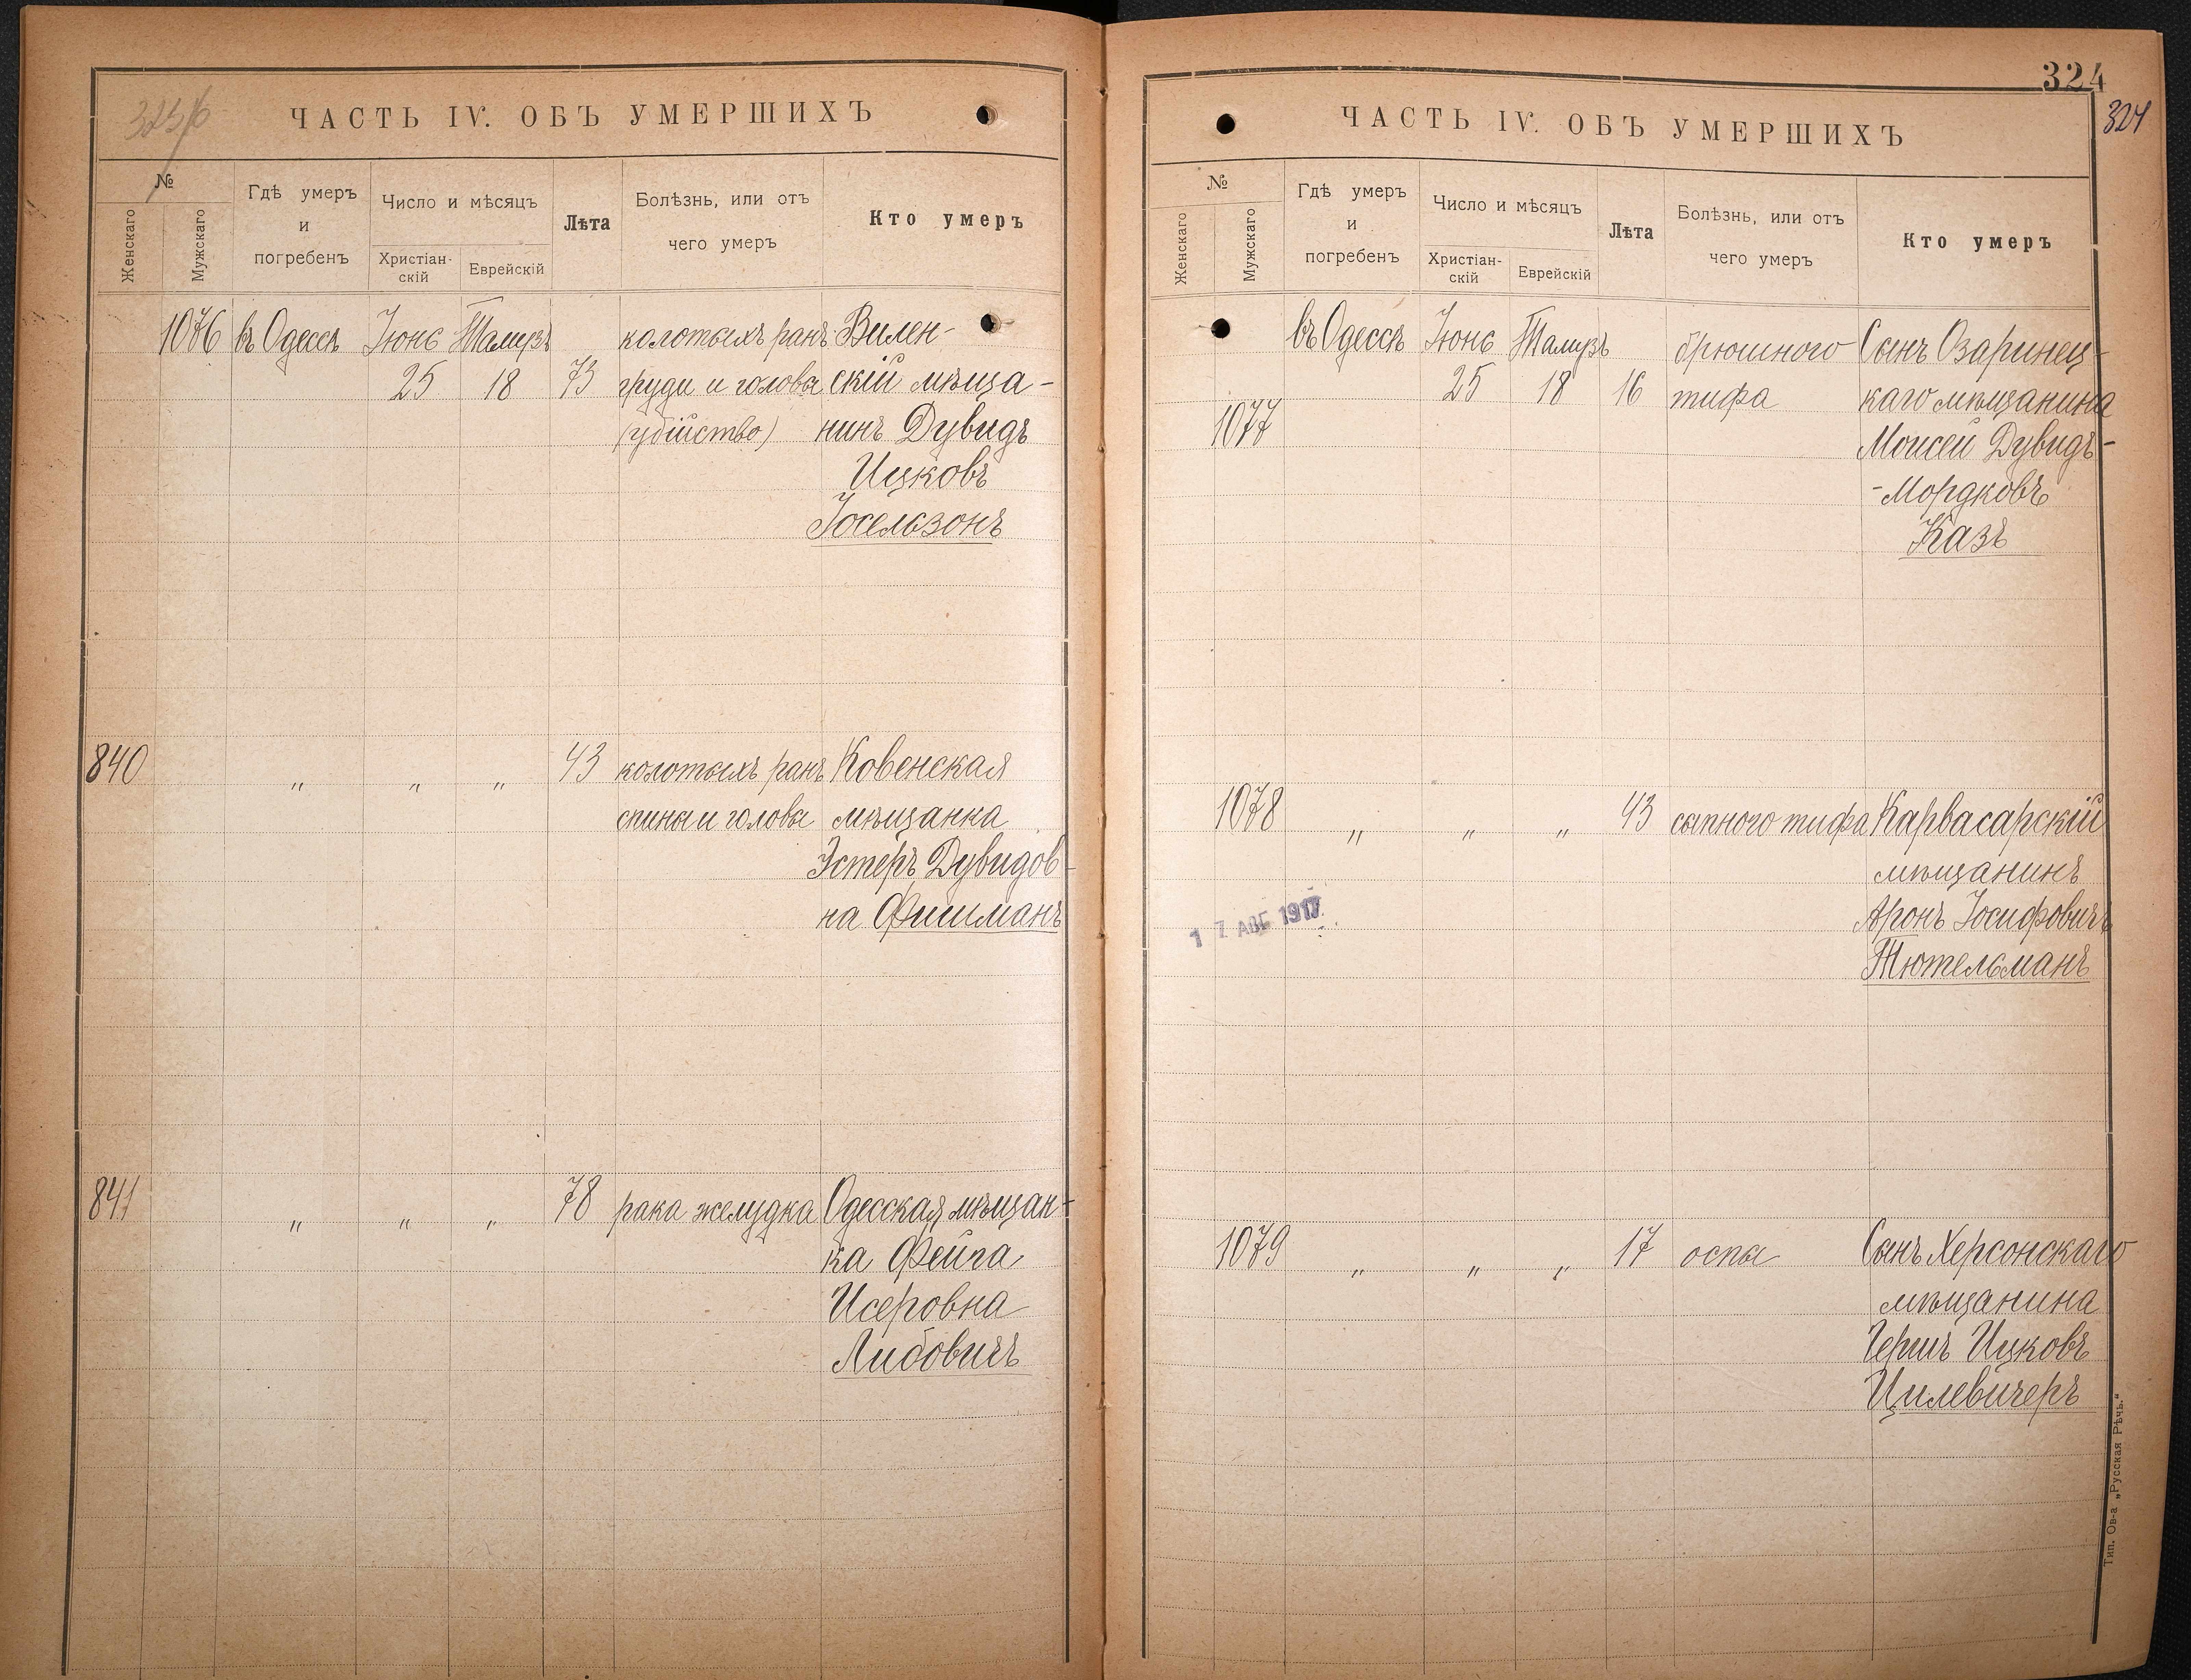 ЧАСТЬ IV. ОБЪ УМЕРШИХЪ
№
Женскаго
Мужскаго
Гдѣ умеръ
и
погребенъ
Число и мѣсяцъ
Христіан-
скій
Еврейскій
Лѣта
Болѣзнь, или отъ
чего умеръ
Кто умеръ
1076 въ Одессѣ Іюнь Тамузъ колотыхъ ранъ Вилен-
25 18 73 груди и головы скій мѣща-
(убійство) нинъ Дувидъ
Ицковъ
Іосельзонъ
840 " " " 43 колотыхъ ранъ Ковенская
спины и головы мѣщанка
Эстеръ Дувидов-
на Фишманъ
841 " " " 78 рака желудка Одесская мѣщан-
ка Фейга
Исеровна
Либовичъ
324
324
ЧАСТЬ IV. ОБЪ УМЕРШИХЪ
№
Женскаго
Мужскаго
Гдѣ умеръ
и
погребенъ
Число и мѣсяцъ
Христіан-
скій
Еврейскій
Лѣта
Болѣзнь, или отъ
чего умеръ
Кто умеръ
въ Одессѣ Іюнь Тамузъ брюшного Сынъ Озаринец-
25 18 16 тифа каго мѣщанина
1077 Моисей Дувидъ-
-Мордковъ
Казъ
1078 " " " 43 сыпного тифа Карвасарскій
мѣщанинъ
Аронъ Іосифовичъ
Тютельманъ
17 АВГ 1917
1079 " " " 17 оспы Сынъ Херсонскаго
мѣщанина
Гершъ Ицковъ
Цилевичеръ
Тип. Ов-а „Русская Рѣчь."